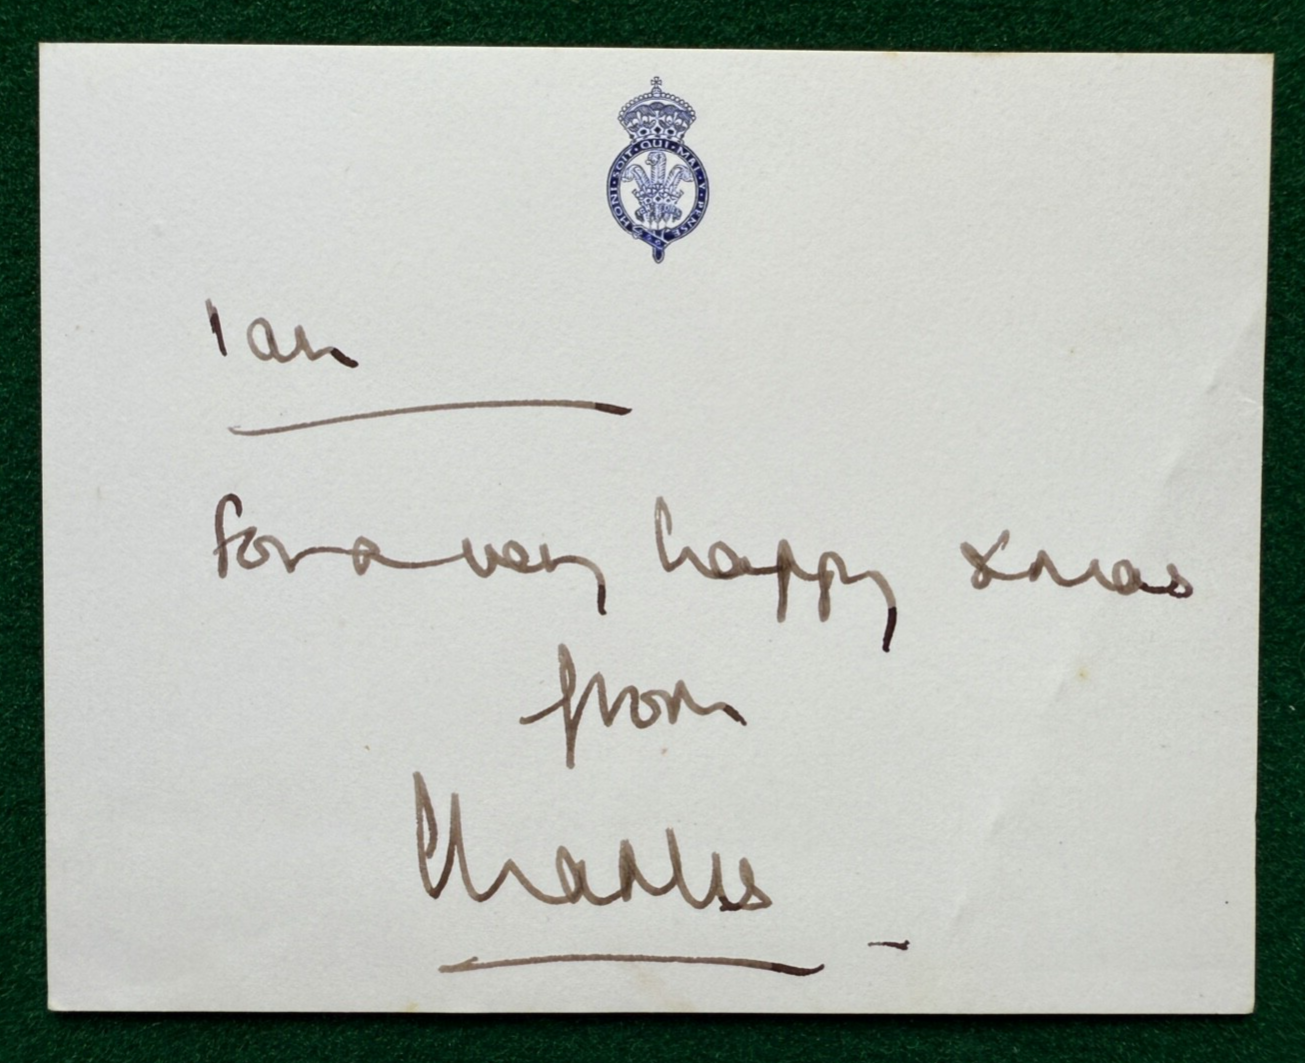 HONI · SOIT · QUI · MAL · Y · PENSE
Ian
For a very happy Xmas
from
Charles